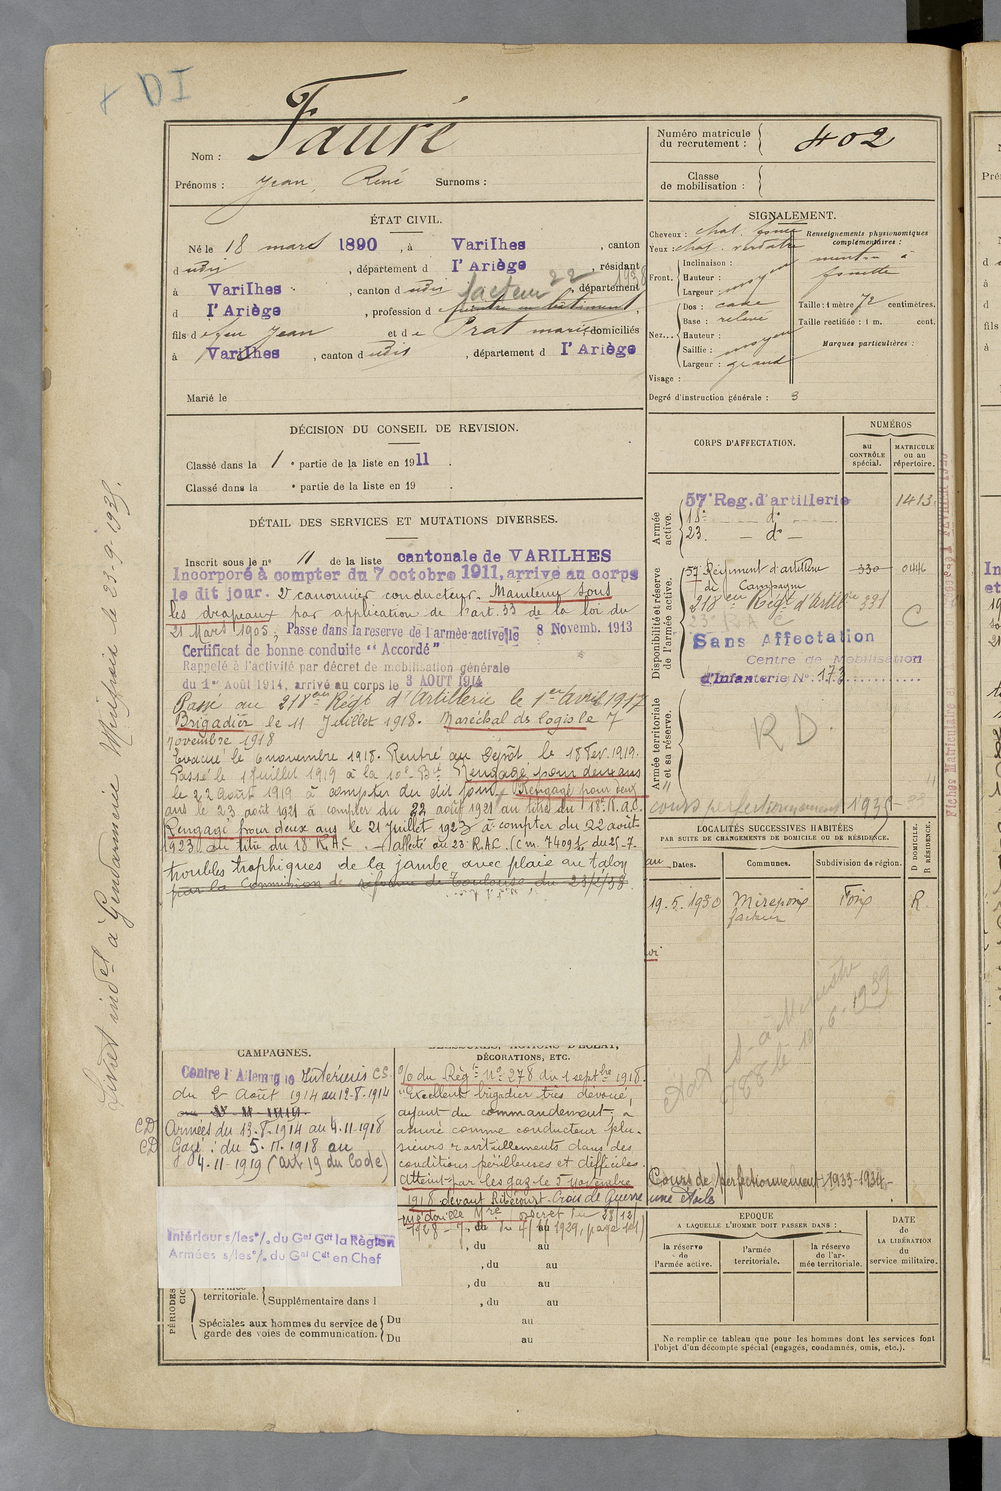 + DI
Nom : Fauré
Prénoms : Jean, René Surnoms :
Numéro matricule
du recrutement : 402
Classe
de mobilisation :
ÉTAT CIVIL.
Né le 18 mars 1890, à Varilhes, canton
d udit, département d l'Ariège, résidant
à Varilhes, canton d udit, département
facteur 22
1938
d l'Ariège, profession d peintre en bâtiment,
fils d e feu Jean et d e Prat marie, domiciliés
à Varilhes, canton d udit, département d l'Ariège
Marié le
SIGNALEMENT.
Cheveux : chat. foncé
Yeux : chat. verdâtre
Inclinaison :
Front. Hauteur : moyen
Largeur :
Dos : cave
Base : relevé
Nez... Hauteur :
Saillie : moyen
Largeur : grand
Visage :
Renseignements physionomiques
complémentaires :
menton à
fossette
Taille : 1 mètre 72 centimètres.
Taille rectifiée : 1 m. cent.
Marques particulières :
Degré d'instruction générale : 3
DÉCISION DU CONSEIL DE REVISION.
Classé dans la 1e partie de la liste en 1911.
Classé dans la e partie de la liste en 19 .
DÉTAIL DES SERVICES ET MUTATIONS DIVERSES.
Inscrit sous le n° 11 de la liste cantonale de VARILHES
Incorporé à compter du 7 octobre 1911, arrivé au corps
le dit jour. 2e canonnier conducteur. Maintenu sous
les drapeaux par application de l'art. 33 de la loi du
21 Mars 1905; Passé dans la reserve de l'armée active le 8 Novemb. 1913
Certificat de bonne conduite "Accordé"
Rappelé à l'activité par décret de mobilisation générale
du 1er Août 1914, arrivé au corps le 3 AOUT 1914
Passé au 218ème Régt d'Artillerie le 1er Avril 1917
Brigadier le 11 Juillet 1918. Maréchal ds logis le 7
novembre 1918
Evacué le 6 novembre 1918. Rentré au Dépôt le 18 Fev. 1919.
Passé le 1 Juillet 1919 à la 10e Bie Rengagé pour deux ans
le 22 Août 1919 à compter du dit jour. Rengagé pour deux
ans le 23 août 1921 à compter du 22 août 1921 au titre du 18e R.A.C.
Rengagé pour deux ans le 21 Juillet 1923 à compter du 22 août
1923 au titre du 18 R.A.C. Affecté au 23 R.A.C. (C m. 7409 1/2 du 25-7-
troubles trophiques de la jambe avec plaie au talon
par la Commission de réforme de Toulouse, du 23/2/38.
CORPS D'AFFECTATION.
NUMÉROS
au
CONTRÔLE
spécial.
MATRICULE
ou au
répertoire.
Armée
active.
57e Reg. d'artillerie 1413
18e — do —
23. — do —
Disponibilité et réserve
de l'armée active.
57 Régiment d'artillerie 330 046
de Campagne
218ème Régt d'Artillie 331
23e R A C C
Sans Affectation
Centre de Mobilisation
d'Infanterie N° 173
Armée territoriale
et sa réserve.
R D.
cours perfectionnement 1935
LOCALITÉS SUCCESSIVES HABITÉES
PAR SUITE DE CHANGEMENTS DE DOMICILE OU DE RÉSIDENCE.
Dates.
Communes.
Subdivision de région.
D DOMICILE.
R RÉSIDENCE.
19.5.1930 Mirepoix Foix R.
facteur
10.6.1939
Cours de perfectionnement : 1933-1934.
une étoile
CAMPAGNES.
Contre l'Allemagne Intérieur CS.
du 2 Août 1914 au 12-8-1914
CD Armées du 13.8.1914 au 4.11.1918
CD Gazé : du 5.11.1918 au
4.11.1919 (art 19 du Code)
Intérieur s/les °/. du Gal Gdt la Région
Armées s/les °/. du Gal Cdt en Chef
BLESSURES, ACTIONS D'ÉCLAT,
DÉCORATIONS, ETC.
O/ du Régt n° 278 du 1 septbre 1918.
"Excellent brigadier très dévoué,
ayant du commandement, a
assuré comme conducteur plu-
sieurs ravitaillements dans des
conditions périlleuses et difficiles.
Atteint par les gaz le 5 novembre
1918 devant Ribécourt. Croix de Guerre
Médaille Mre Décret du 28/12/
1928
, du au
, du au
, du au
, du au
territoriale. Supplémentaire dans l
Spéciales aux hommes du service de
garde des voies de communication.
Du au
Du au
PÉRIODES
ÉPOQUE
A LAQUELLE L'HOMME DOIT PASSER DANS :
la réserve
de
l'armée active.
l'armée
territoriale.
la réserve
de l'ar-
mée territoriale.
DATE
de
LA LIBÉRATION
du
service militaire.
Ne remplir ce tableau que pour les hommes dont les services font
l'objet d'un décompte spécial (engagés, condamnés, omis, etc.).
Livret indel à Gendarmerie Mirepoix le 23-9-1939.